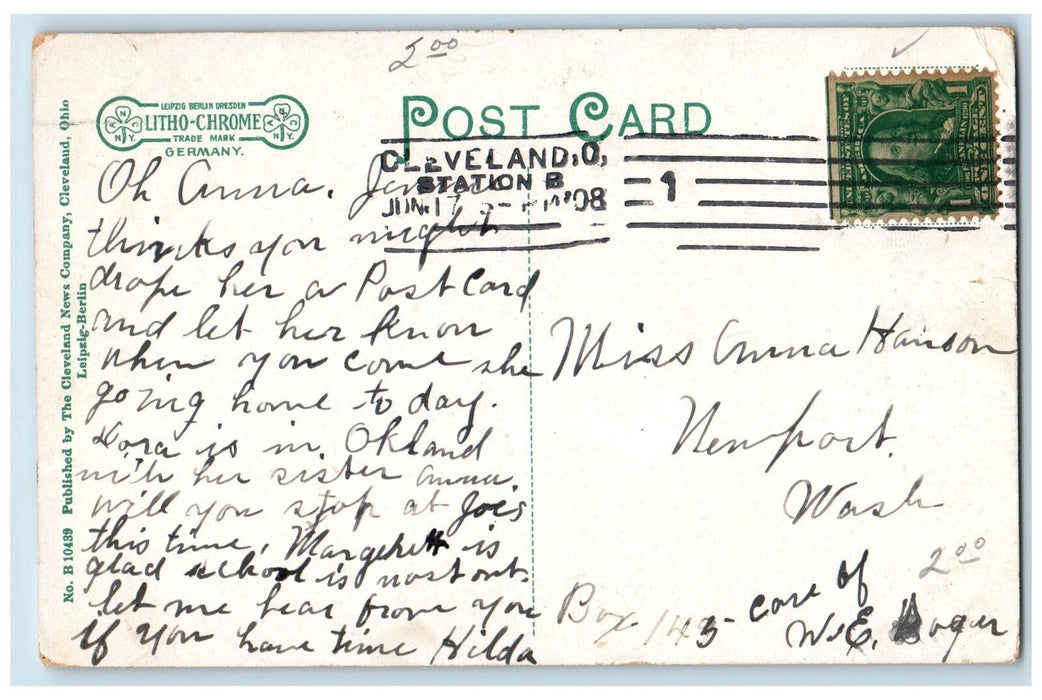 2 00
POST CARD
LEIPZIG BERLIN DRESDEN
LITHO-CHROME
TRADE MARK
GERMANY.
No. B 10439 Published by The Cleveland News Company, Cleveland, Ohio
Leipzig-Berlin
CLEVELAND, O.
STATION B
JUN 17 '08
1
Oh Anna.
thinks you might
drope her a Post Card
and let her know
when you come she
going home to day.
Nora is in Okland
with her sister anna.
will you stop at Joes
this time, Margehett is
glad school is most out.
let me hear from you
If you have time Hilda
Miss Anna Hanson
Newport.
Wash
Box 145 care of
W.E.
2 00